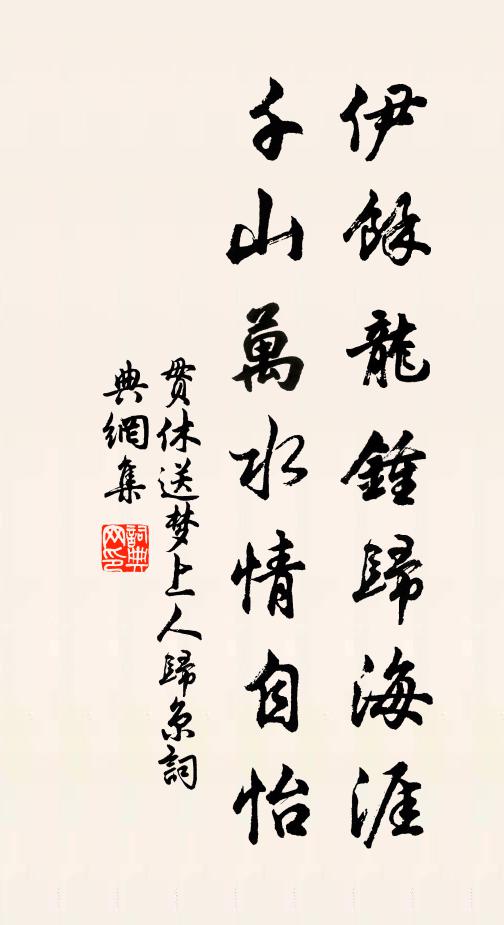 伊餘龍鍾歸海涯
千山萬水情自怡
貫休送梦上人歸京詞
典網集
詞典網印